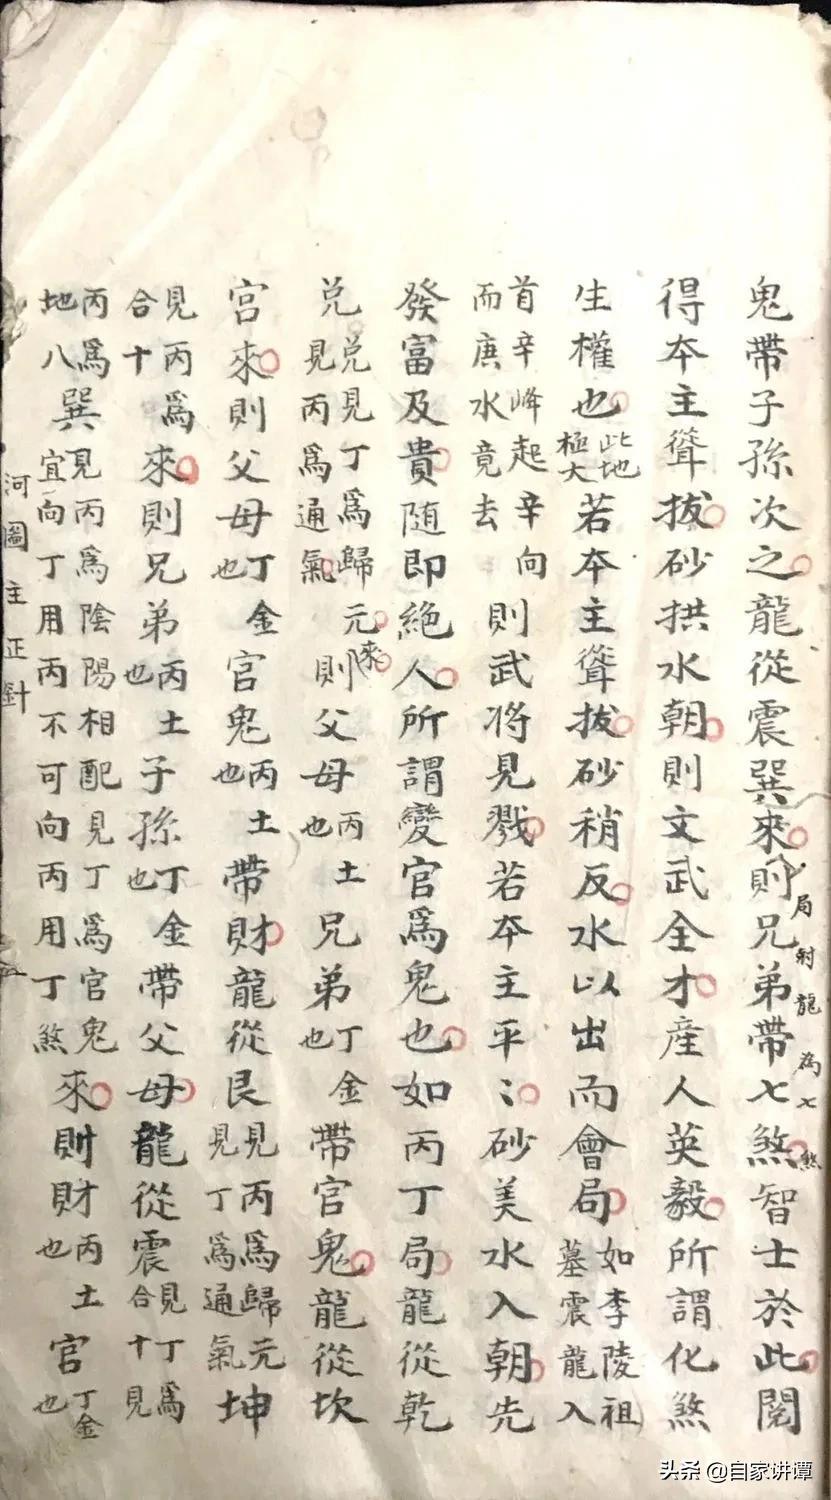 局射龍為七煞
鬼帶子孫次之龍從震巽來則兄弟帶七煞智士於此閱
得夲主聳拔砂拱水朝則文武全才產人英毅所謂化煞
生權也此地極大若夲主聳拔砂稍反水以出而會局如李陵祖墓震龍入
首辛峰起辛向而庚水竟去則武将見戮若夲主平〻砂美水入朝先
發富及貴随即絶人所謂變官為鬼也如丙丁局龍從乾
兑兑見丁為歸元見丙為通氣來則父母丙土也兄弟丁金也帶官鬼龍從坎
宮來則父母丁金也官鬼丙土也帶財龍從艮見丙為歸元見丁為通氣坤
見丙為合十來則兄弟丙土也子孫丁金也帶父母龍從震見丁為合十見
丙為地八巽見丙為陰陽相配見丁為官鬼宜向丁用丙不可向丙用丁煞來則財丙土也官丁金也
河圖主正針
头条 @自家讲谭